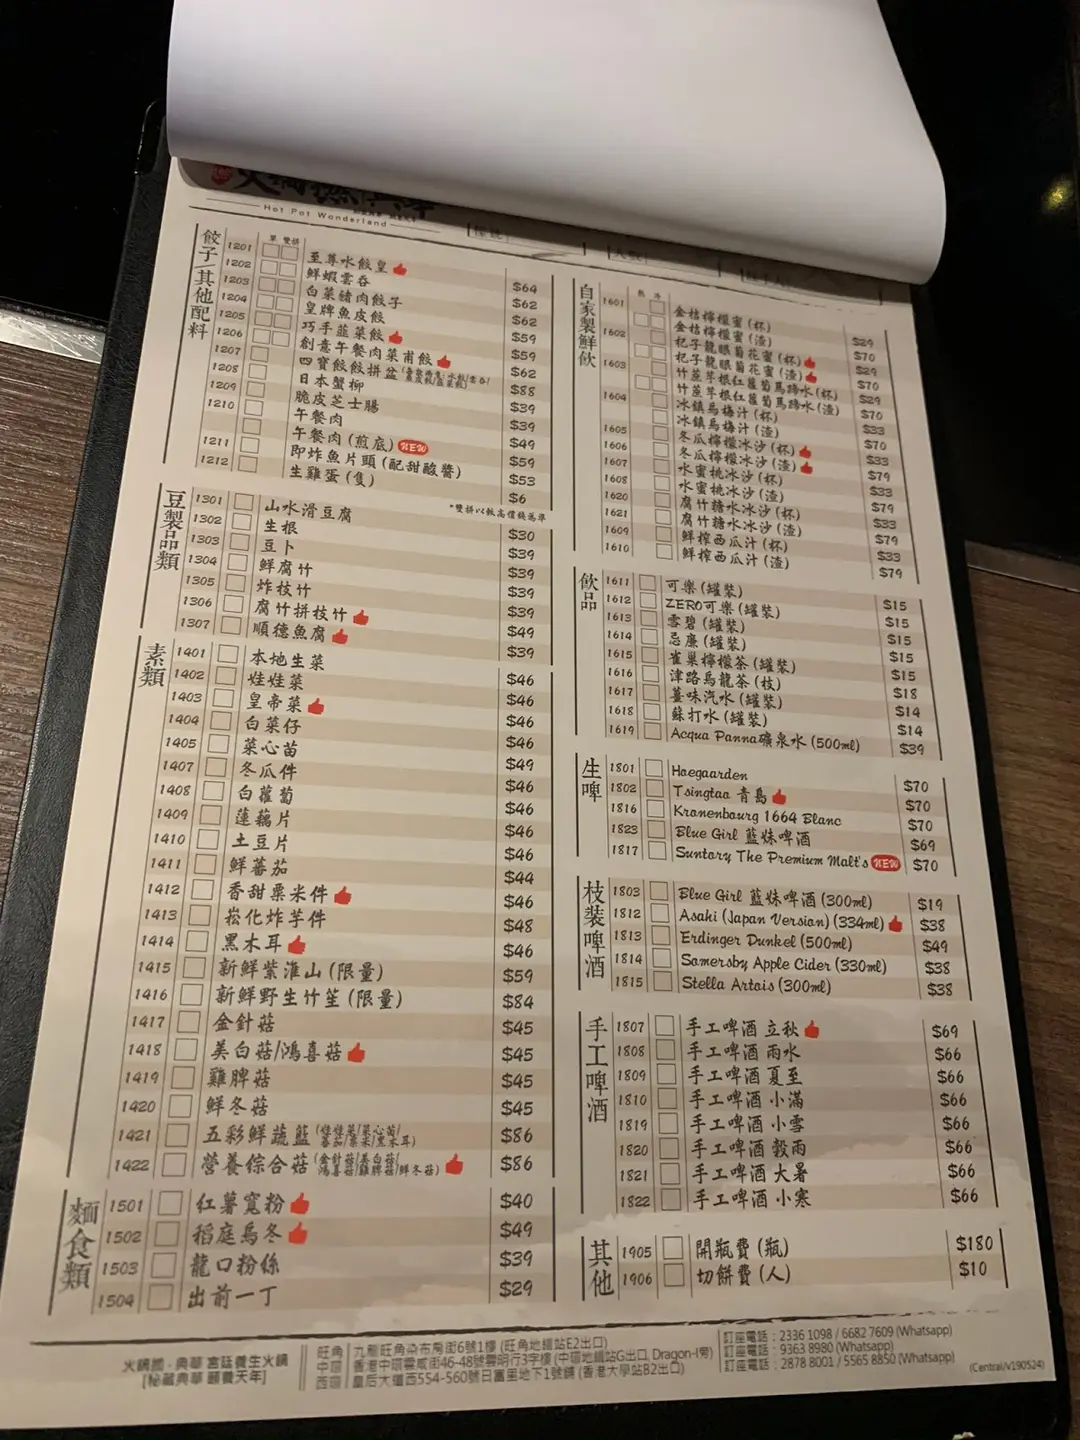 Hot Pot Wonderland
餃子/其他配料
單 雙拼
1201 至尊水餃皇 $64
1202 鮮蝦雲吞 $62
1203 白菜豬肉餃子 $62
1204 皇牌魚皮餃 $59
1205 巧手韮菜餃 $59
1206 創意午餐肉菜甫餃 $62
1207 四寶餃餃拼盆 $88
1208 日本蟹柳 $39
1209 脆皮芝士腸 $39
1210 午餐肉 $49
午餐肉 (煎底) NEW $59
1211 即炸魚片頭 (配甜酸醬) $53
1212 生雞蛋 (隻) $6
*雙拼以較高價錢為準
豆製品類
1301 山水滑豆腐 $30
1302 生根 $39
1303 豆卜 $39
1304 鮮腐竹 $39
1305 炸枝竹 $39
1306 腐竹拼枝竹 $49
1307 順德魚腐 $39
素類
1401 本地生菜 $46
1402 娃娃菜 $46
1403 皇帝菜 $46
1404 白菜仔 $46
1405 菜心苗 $49
1407 冬瓜件 $46
1408 白蘿蔔 $46
1409 蓮藕片 $46
1410 土豆片 $44
1411 鮮蕃茄 $46
1412 香甜粟米件 $48
1413 菘化炸芋件 $46
1414 黑木耳 $59
1415 新鮮紫淮山 (限量) $84
1416 新鮮野生竹笙 (限量) $45
1417 金針菇 $45
1418 美白菇/鴻喜菇 $45
1419 雞脾菇 $45
1420 鮮冬菇
1421 五彩鮮蔬籃 $86
1422 營養綜合菇 (金針菇/美白菇/鴻喜菇/雞脾菇/鮮冬菇) $86
麵食類
1501 紅薯寬粉 $40
1502 稻庭烏冬 $49
1503 龍口粉絲 $39
1504 出前一丁 $29
自家製鮮飲
熱 冷
1601 金桔檸檬蜜 (杯) $29
金桔檸檬蜜 (渣) $70
1602 杞子龍眼菊花蜜 (杯) $29
杞子龍眼菊花蜜 (渣) $70
1603 竹蔗茅根紅蘿蔔馬蹄水 (杯) $29
竹蔗茅根紅蘿蔔馬蹄水 (渣) $70
1604 冰鎮烏梅汁 (杯) $33
冰鎮烏梅汁 (渣) $70
1605 冬瓜檸檬冰沙 (杯) $33
1606 冬瓜檸檬冰沙 (渣) $79
1607 水蜜桃冰沙 (杯) $33
1608 水蜜桃冰沙 (渣) $79
1620 腐竹糖水冰沙 (杯) $33
1621 腐竹糖水冰沙 (渣) $79
1609 鮮榨西瓜汁 (杯) $33
1610 鮮榨西瓜汁 (渣) $79
飲品
1611 可樂 (罐裝) $15
1612 ZERO可樂 (罐裝) $15
1613 雪碧 (罐裝) $15
1614 忌廉 (罐裝) $15
1615 雀巢檸檬茶 (罐裝) $15
1616 津路烏龍茶 (枝) $18
1617 薑味汽水 (罐裝) $14
1618 蘇打水 (罐裝) $14
1619 Acqua Panna礦泉水 (500ml) $39
生啤
1801 Hoegaarden $70
1802 Tsingtao 青島 $70
1816 Kronenbourg 1664 Blanc $70
1823 Blue Girl 藍妹啤酒 $69
1817 Suntory The Premium Malt's NEW $70
枝裝啤酒
1803 Blue Girl 藍妹啤酒 (300ml) $19
1812 Asahi (Japan Version) (334ml) $38
1813 Erdinger Dunkel (500ml) $49
1814 Somersby Apple Cider (330ml) $38
1815 Stella Artois (300ml) $38
手工啤酒
1807 手工啤酒 立秋 $69
1808 手工啤酒 雨水 $66
1809 手工啤酒 夏至 $66
1810 手工啤酒 小滿 $66
1819 手工啤酒 小雪 $66
1820 手工啤酒 穀雨 $66
1821 手工啤酒 大暑 $66
1822 手工啤酒 小寒 $66
其他
1905 開瓶費 (瓶) $180
1906 切餅費 (人) $10
火鍋國 · 典華 宮廷養生火鍋
[秘藏典華 頤養天年]
旺角 九龍旺角染布房街6號1樓 (旺角地鐵站E2出口)
中環 香港中環雲咸街46-48號雲明行3字樓 (中環地鐵站G出口, Dragon-I旁)
西環 皇后大道西554-560號日富里地下1號舖 (香港大學站B2出口)
訂座電話 : 2336 1098 / 6682 7609 (Whatsapp)
訂座電話 : 9363 8980 (Whatsapp)
訂座電話 : 2878 8001 / 5565 8850 (Whatsapp)
(Central/v190524)